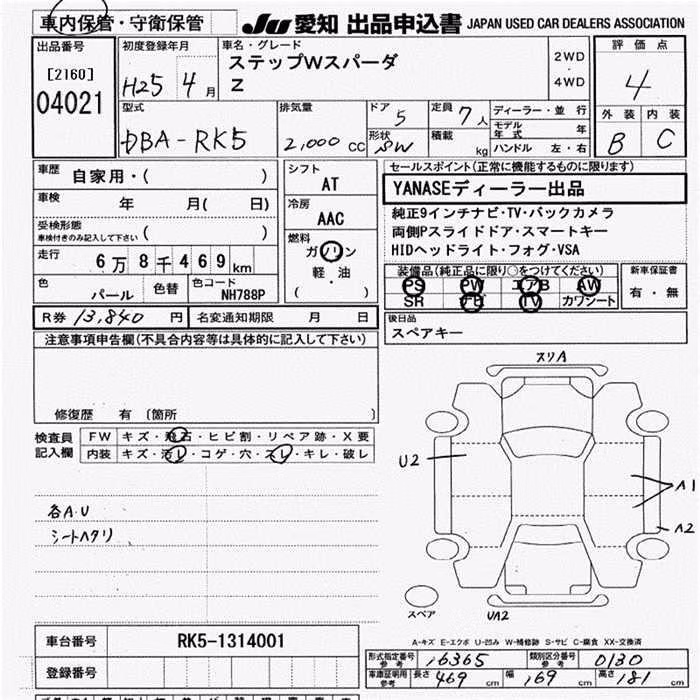 車内保管・守衛保管
JU 愛知 出品申込書 JAPAN USED CAR DEALERS ASSOCIATION
出品番号 [2160] 04021
初度登録年月 H25 4月
車名・グレード ステップWスパーダ Z
2WD・4WD
評価点 4
外装 B 内装 C
型式 DBA-RK5
排気量 2,000 CC
ドア 5 形状 SW
定員 7人 積載 kg
ディーラー・並行
モデル年式 年
ハンドル 左・右
車歴 自家用・( )
車検 年 月( 日)
受検形態 車検付きのみ記入して下さい ( )
走行 6万8千469km
色 パール 色替 色コード NH788P
シフト AT
冷房 AAC
燃料 ガソリン 軽・油 ( )
セールスポイント(正常に機能するものに限ります)
YANASEディーラー出品
純正9インチナビ・TV・バックカメラ
両側Pスライドドア・スマートキー
HIDヘッドライト・フォグ・VSA
装備品(純正品に限り○をつけてください)
PS PW エアB AW
SR ナビ TV カワシート
新車保証書 有・無
R券 13,840円 名変通知期限 月 日
後日品 スペアキー
注意事項申告欄(不具合内容等は具体的に記入して下さい)
修復歴 有 〔箇所 〕
検査員記入欄
FW キズ・飛石・ヒビ割・リペア跡・X要
内装 キズ・汚レ・コゲ・穴・スレ・キレ・破レ
各A.U
シートヘタリ
スリA
U2
A1
A2
スペア
UA2
A-キズ E-エクボ U-凹み W-補修跡 S-サビ C-腐食 XX-交換済
車台番号 RK5-1314001
登録番号
形式指定番号 参考 16365 類別区分番号 参考 0130
車庫証明用 参考 長さ 469cm 幅 169cm 高さ 181cm